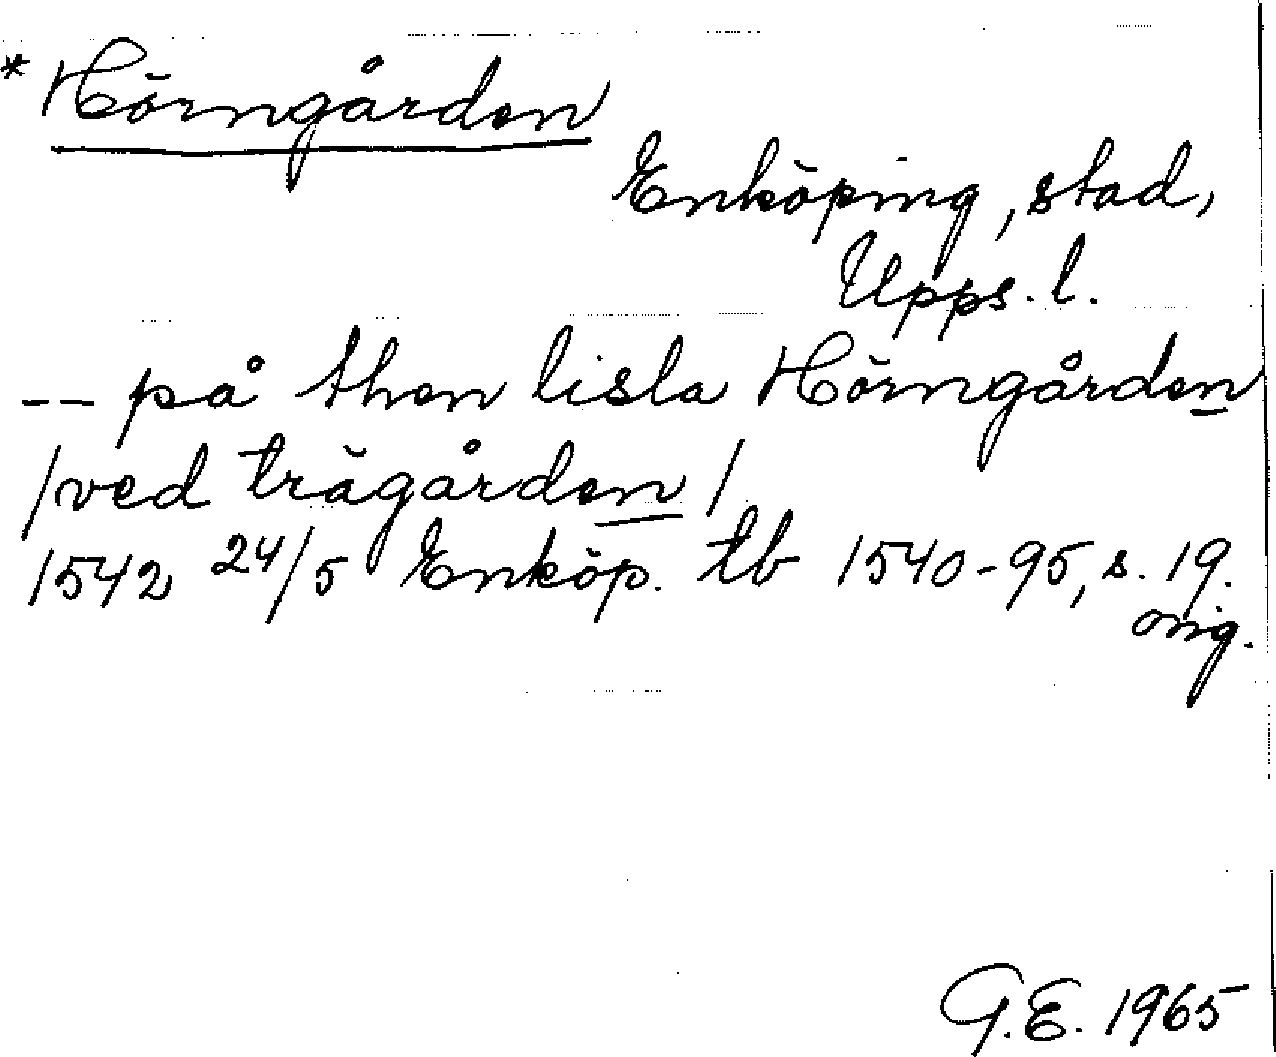 * Hörngården
Enköping, stad,
Upps. l.
-- på then lisla Hörngården
/ved trägården/
1542 24/5 Enköp. tb 1540-95, s. 19.
orig.
G.E. 1965